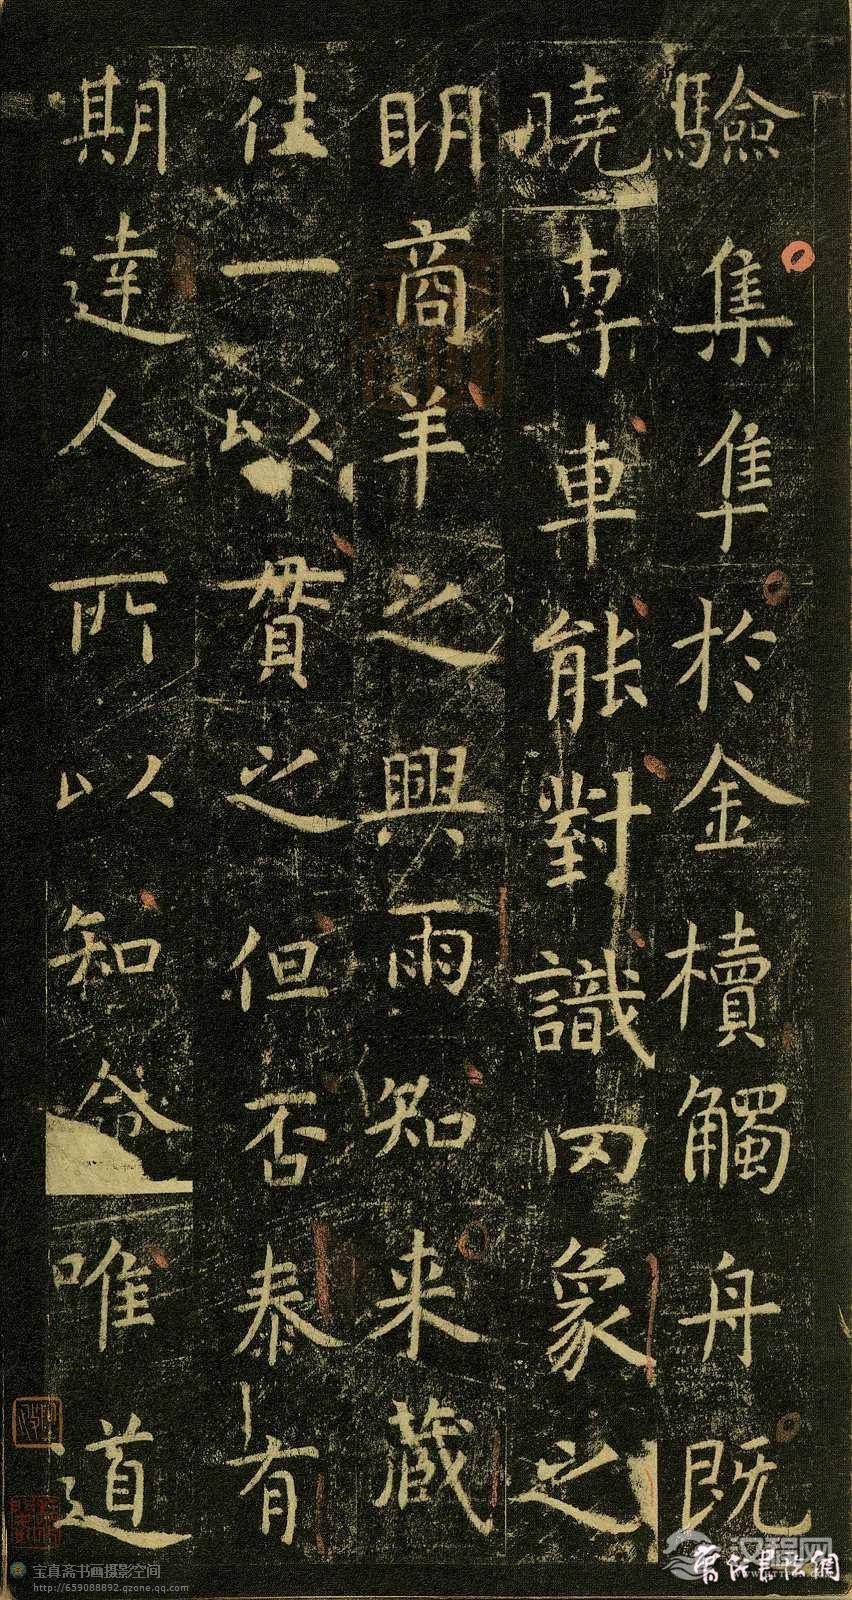 驗集隼於金櫝觸舟既
曉専車能對識罔象之
明商羊之興雨知来藏
往一以貫之但否泰有
期達人所以知命唯道
宝真斋书画摄影空间
http://659088892.qzone.qq.com
汉程网